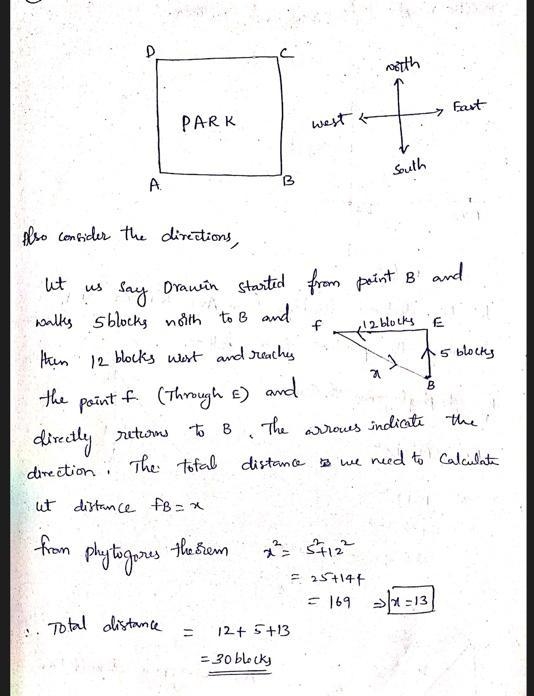 D C
PARK
A B
north
west East
South
Also consider the directions,
let us say Drawin started from point B and
walks 5 blocks north to B and
then 12 blocks west and reaches
the point f (Through E) and
directly returns to B. The arrows indicate the
direction. The total distance we need to Calculate
f 12 blocks E
5 blocks
x
B
let distance fB = x
from phytogores theorem x² = 5²+12²
= 25+144
= 169 ⇒ x = 13
∴ Total distance = 12 + 5 + 13
= 30 blocks